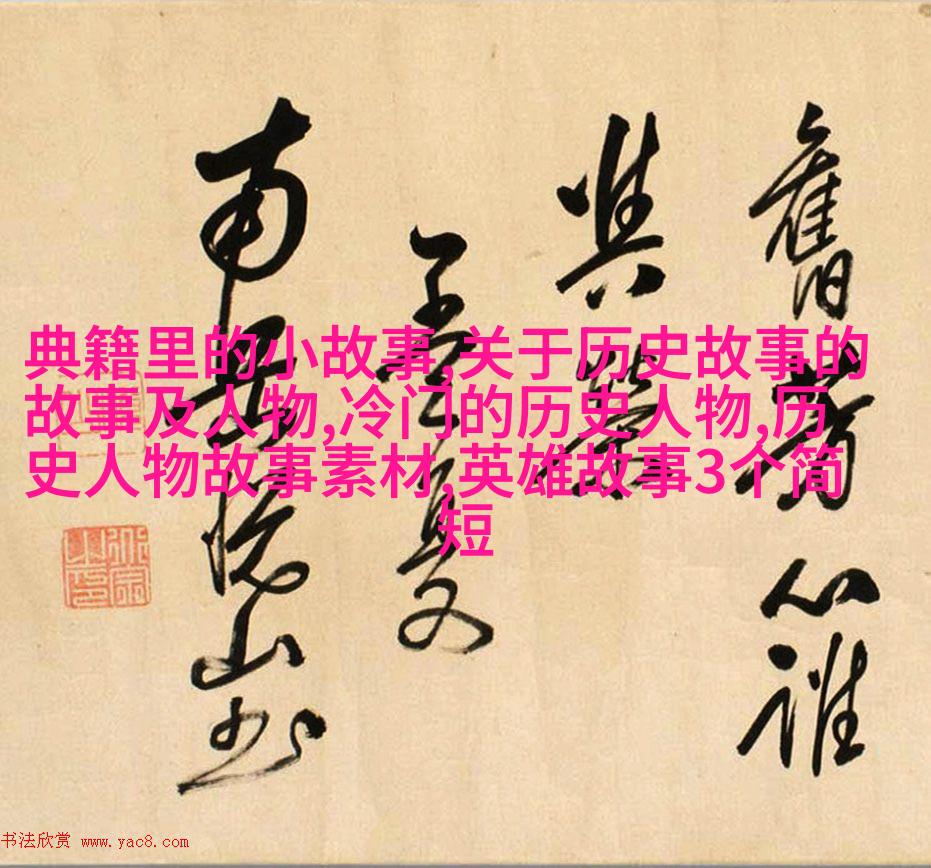 舊勞心誰
與
孟夏
南岳悦山书
典籍里的小故事,关于历史故事的
故事及人物,冷门的历史人物,历
史人物故事素材,英雄故事3个简
短
书法欣赏 www.yac8.com